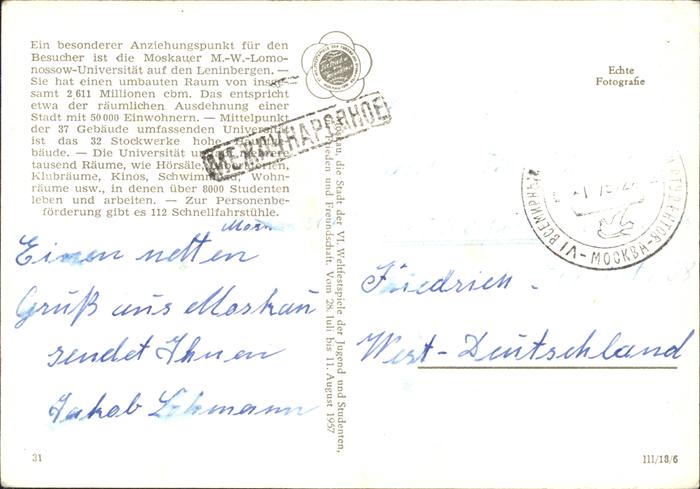 Ein besonderer Anziehungspunkt für den
Besucher ist die Moskauer M.-W.-Lomo-
nossow-Universität auf den Leninbergen. —
Sie hat einen umbauten Raum von insge-
samt 2 611 Millionen cbm. Das entspricht
etwa der räumlichen Ausdehnung einer
Stadt mit 50 000 Einwohnern. — Mittelpunkt
der 37 Gebäude umfassenden Universität
ist das 32 Stockwerke hohe
bäude. — Die Universität
tausend Räume, wie Hörsäle,
Klubräume, Kinos, Schwimmbad, Wohn-
räume usw., in denen über 8000 Studenten
leben und arbeiten. — Zur Personenbe-
förderung gibt es 112 Schnellfahrstühle.
МЕЖДУНАРОДНОЕ
Echte
Fotografie
VI ВСЕМИРНЫЙ
МОСКВА
Einen netten
Gruß aus Moskau
sendet Ihnen
Jakob Lohmann
Moskau, die Stadt der VI. Weltfestspiele der Jugend und Studenten,
Frieden und Freundschaft. Vom 28. Juli bis 11. August 1957
Friedrich.
West-Deutschland
31
III/18/6